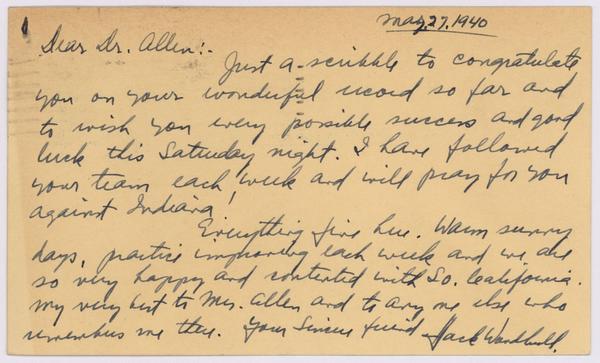 May, 27, 1940
Dear Dr. Allen:-
Just a scribble to congratulate
you on your wonderful record so far and
to wish you every possible success and good
luck this Saturday night. I have followed
your team each week and will pray for you
against Indiana!
Everything fine here. Warm sunny
days, practice improving each week and we are
so very happy and contented with So. California.
My very best to Mrs. Allen and to any one else who
remembers me there. Your Sincere friend Jack